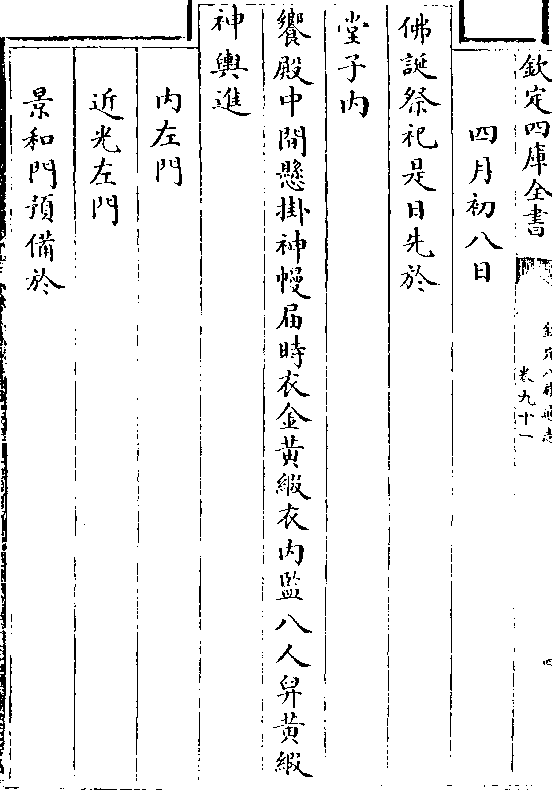 欽定四庫全書
欽定八旗通志
卷九十一
四月初八日
佛誕祭祀是日先於
堂子內
饗殿中間懸掛神幔屆時衣金黃緞衣內監八人舁黃緞
神輿進
內左門
近光左門
景和門預備於